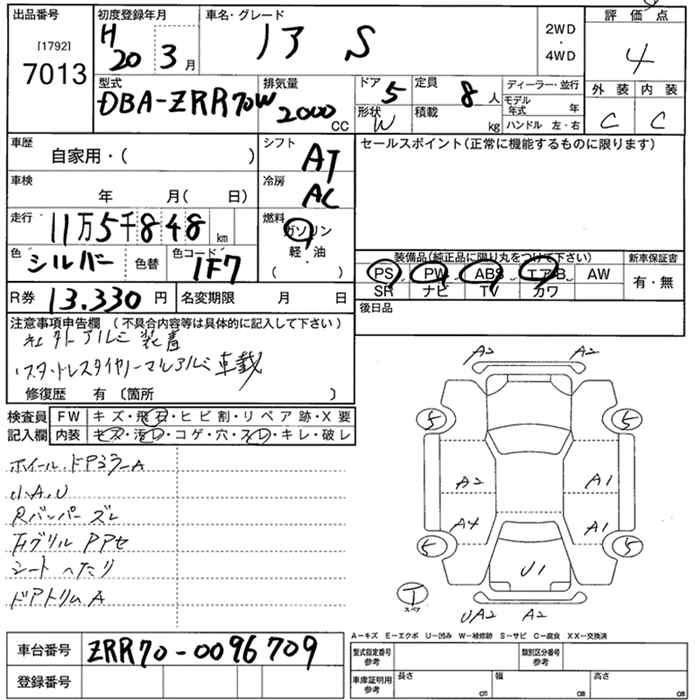 出品番号
[1792]
7013
初度登録年月
H 20 3月
車名・グレード
ノア S
2WD
・
4WD
評価点
4
型式
DBA-ZRR70W
排気量
2000 cc
ドア 5
定員 8人
形状 W
積載 kg
ディーラー・並行
モデル年式 年
ハンドル 左・右
外装 内装
C C
車歴
自家用・( )
シフト
AT
セールスポイント(正常に機能するものに限ります)
車検
年 月( 日)
冷房
AC
走行 11万5千848km
燃料
ガソリン
軽・油
( )
色 シルバー 色替
色コード 1F7
装備品(純正品に限り丸をつけて下さい)
PS PW ABS エアB AW
SR ナビ TV カワ
新車保証書
有・無
R券 13.330円
名変期限 月 日
後日品
注意事項申告欄 (不具合内容等は具体的に記入して下さい)
社外アルミ装着
スタットレスタイヤノーマルアルミ車載
修復歴 有 〔箇所 〕
検査員記入欄
FW キズ・飛石・ヒビ割・リペア跡・X要
内装 キズ・汚レ・コゲ・穴・スレ・キレ・破レ
ホイール.ドアミラーA
小A.U
Rバンパーズレ
FグリルPPセ
シートへたり
ドアトリムA
A2
A2
5
5
A2
A1
A4
A1
5
5
U1
T
スペア
UA2
A2
A-キズ E-エクボ U-凹み W-補修跡 S-サビ C-腐食 XX-交換済
車台番号 ZRR70-0096709
登録番号
型式指定番号
参考
類別区分番号
参考
車庫証明用
参考
長さ cm
幅 cm
高さ cm